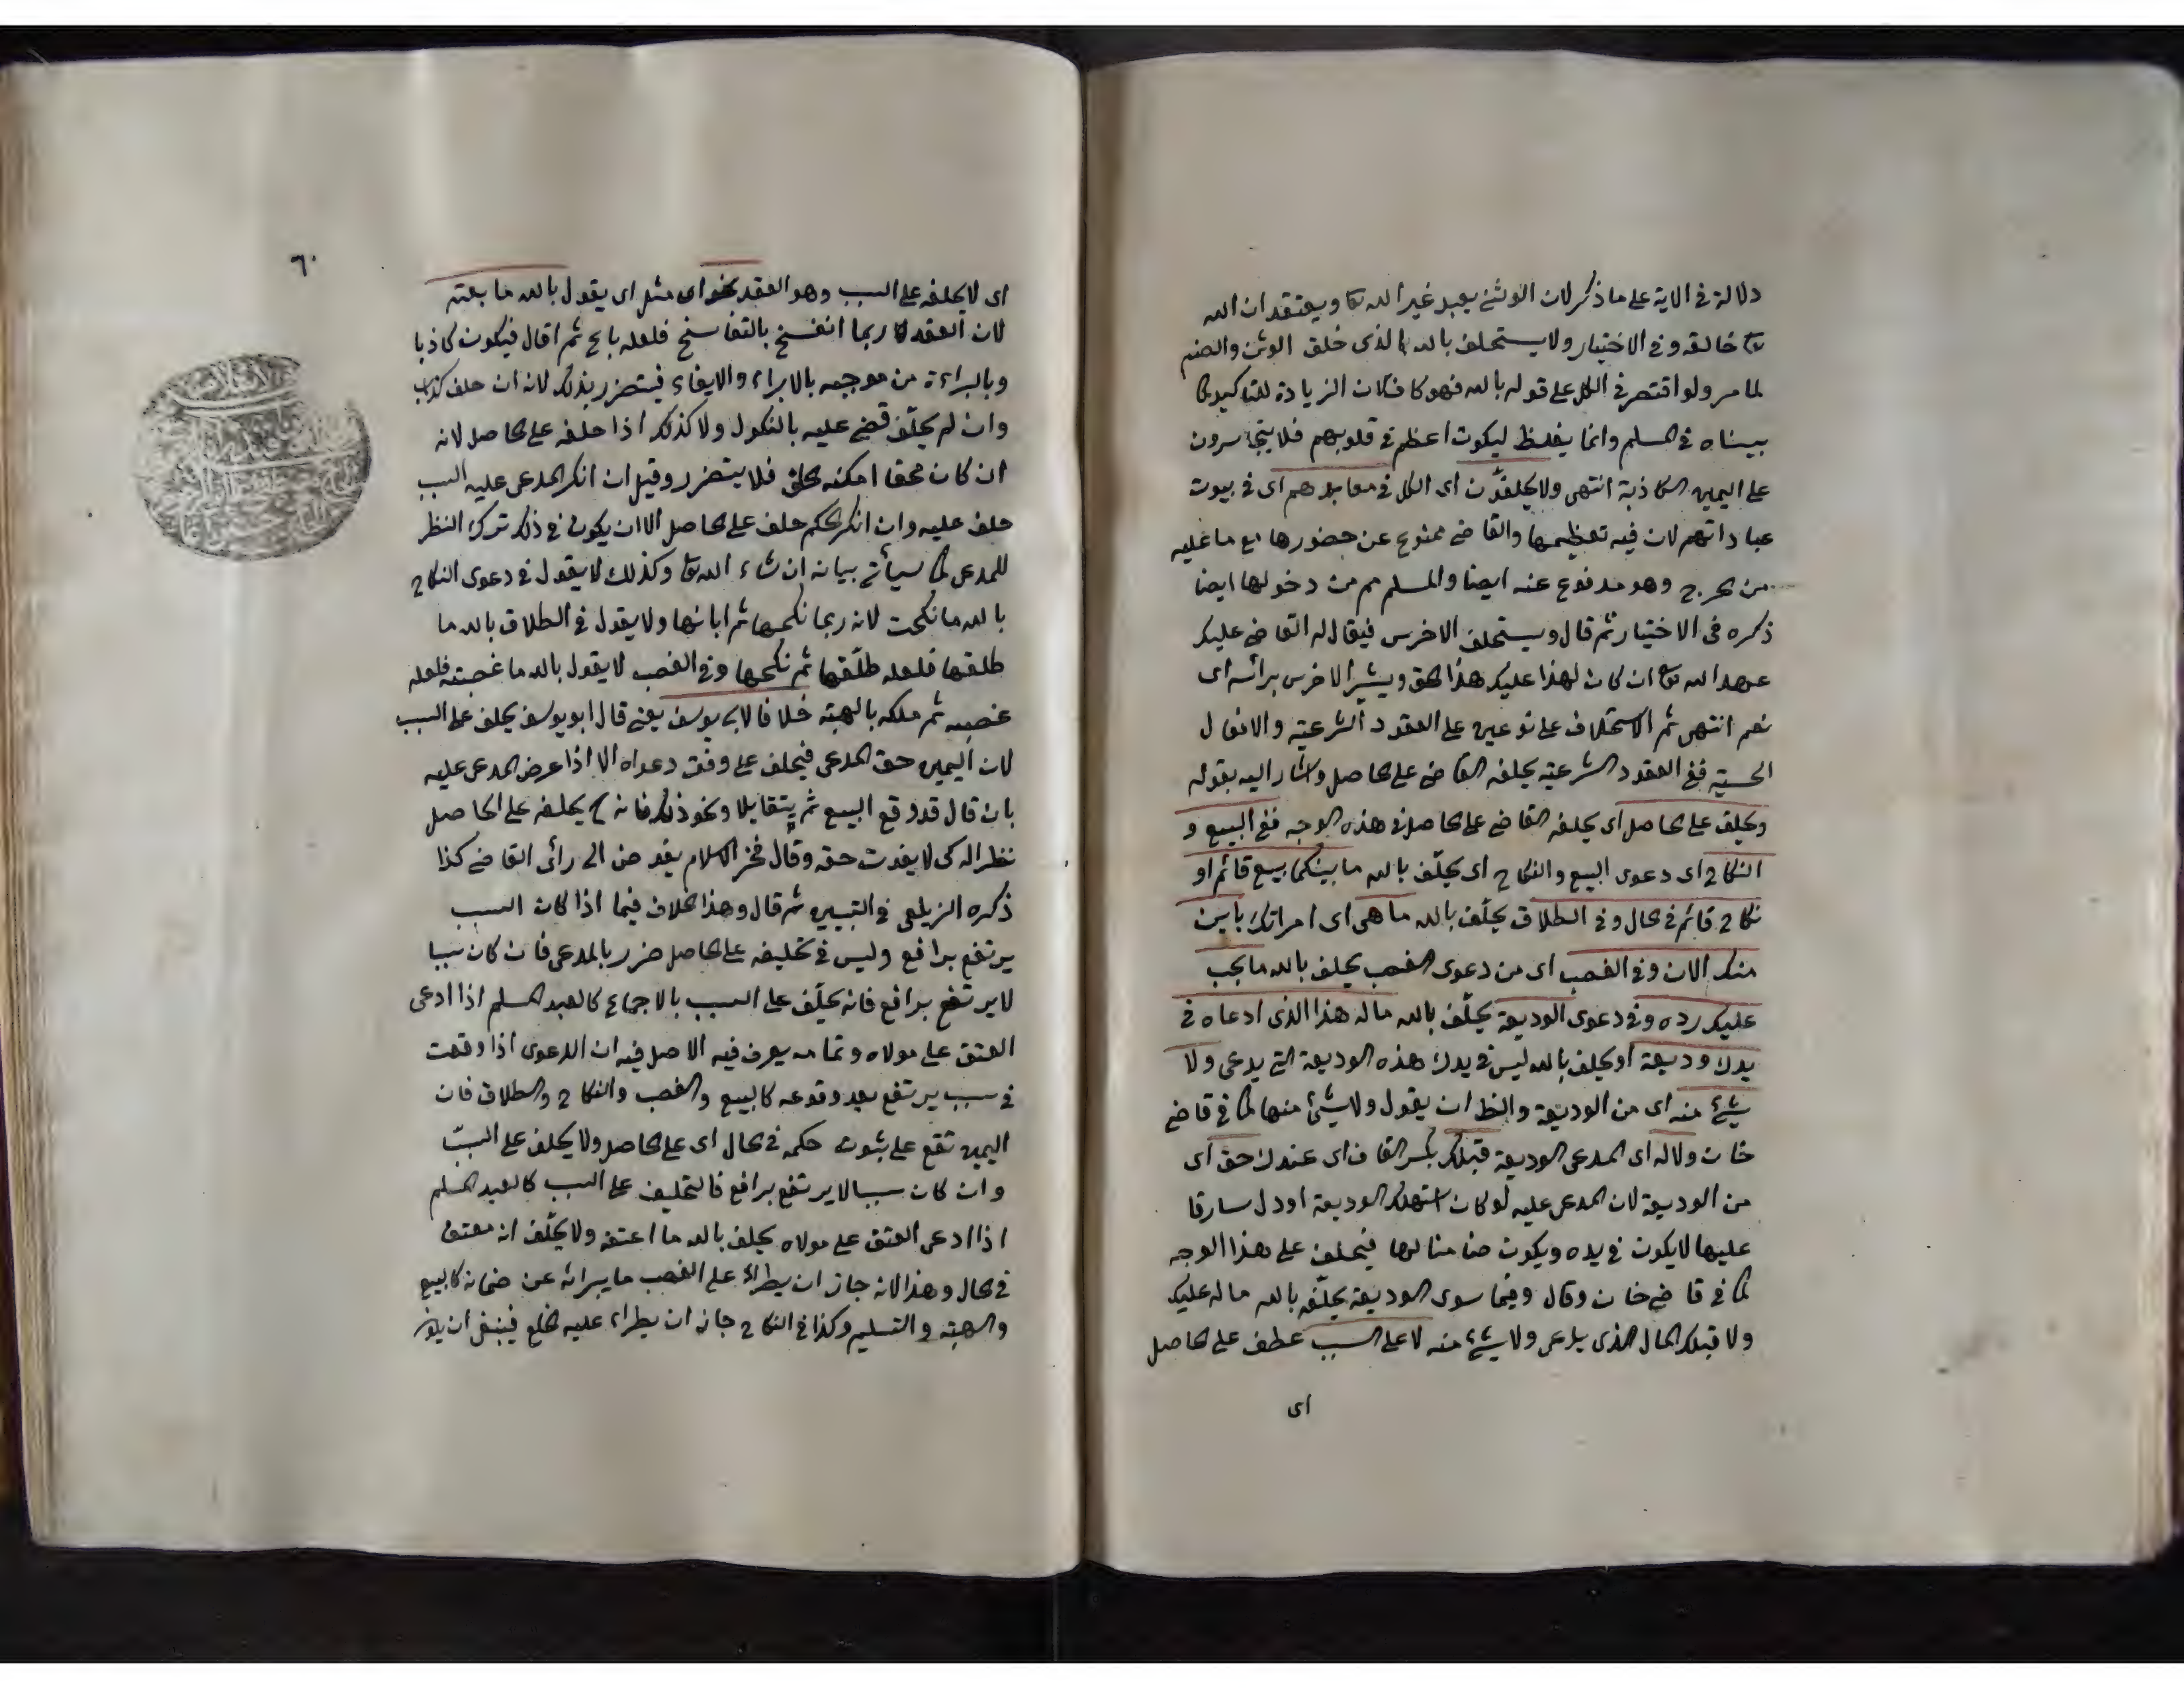 دلالة في الاية على ما ذكر لان الوثني يعبد غير الله تعا ويعتقد ان الله
تعا خالقه وفي الاختيار ولا يستحلف بالله الذي خلق الوثن والصنم
لما مر ولو اقتصر في الكل على قوله بالله فهو كاف لان الزيادة للتاكيد كما
بيناه في المسلم وانما يغلظ ليكون اعظم في قلوبهم فلا يتجاسرون
على اليمين الكاذبة انتهى ولا يحلفون اى الكل في معابدهم اى في بيوت
عباداتهم لان فيه تعظيمها والقاضي ممنوع عن حضورها مع ما عليه
من الحرج وهو مدفوع عنه ايضا والمسلم مم من دخولها ايضا
ذكره فى الاختيار ثم قال ويستحلف الاخرس فيقال له القاضي عليك
عهد الله تع ان كان لهذا عليك هذا الحق ويشير الاخرس برأسه اى
نعم انتهى ثم الاستحلاف على نوعين على العقود الشرعية والافعال
الحسية ففي العقود الشرعية يحلفه القاضي على الحاصل واشار اليه بقوله
ويحلف على الحاصل اى يحلفه القاضي على الحاصل في هذه الوجه ففي البيع و
النكاح اى دعوى البيع والنكاح اى يحلّف بالله ما بينكما بيع قائم او
نكاح قائم في الحال وفي الطلاق يحلّف بالله ما هي اى امراتك باين
منك الان وفي الغصب اى من دعوى الغصب يحلف بالله ما يجب
عليك رده وفي دعوى الوديعة يحلّف بالله ما له هذا الذى ادعاه في
يدك وديعة او يحلف بالله ليس في يدك هذه الوديعة التي يدعى ولا
شيئ منه اى من الوديعة والظ ان يقول ولا شيئ منها كما في قاضي
خان ولا له اى المدعى الوديعة قبلك بكسر القاف اى عندك حق اى
من الوديعة لان المدعى عليه لو كان استهلك الوديعة او دل سارقا
عليها لا يكون في يده ويكون ضامنا لها فيحلف على هذا الوجه
كما في قاضي خان وقال وفيما سوى الوديعة يحلّفه بالله ما له عليك
ولا قبلك المال الذى يدعى ولا شيئ منه لا على السبب عطف على الحاصل
اى
٦٠
اى لا يحلفه على السبب وهو العقد نحو اى مثل اى يقول بالله ما بعته
لان العقد ربما انفسخ بالتفاسخ فلعله باع ثم اقال فيكون كاذبا
وبالبراءة من موجبه بالابراء والايفاء فيتضرر بذلك لانه ان حلف كذب
وان لم يحلّف قضي عليه بالنكول ولا كذلك اذا حلفه على الحاصل لانه
ان كان محقا امكنه الحلف فلا يتضرر وقيل ان انكر المدعى عليه السبب
حلف عليه وان انكر الحكم حلف على الحاصل الا ان يكون في ذلك ترك النظر
للمدعى كما سيأتي بيانه ان شاء الله تعا وكذلك لا يقول في دعوى النكاح
بالله ما نكحت لانه ربما نكحها ثم ابانها ولا يقول في الطلاق بالله ما
طلقها فلعله طلّقها ثم نكحها وفي الغصب لا يقول بالله ما غصبته فلعله
غصبه ثم ملكه بالهبة خلافا لابى يوسف يعني قال ابو يوسف يحلف على السبب
لان اليمين حق المدعى فيحلف على وفق دعواه الا اذا عرض المدعى عليه
بان قال قد وقع البيع ثم يتقايلا ونحو ذلك فانه ح يحلفه على الحاصل
نظرا له كى لا يفوت حقه وقال فخر الاسلام يفوض الى رأى القاضي كذا
ذكره الزيلعى في التبيين ثم قال وهذا الخلاف فيما اذا كان السبب
يرتفع برافع وليس في تحليفه على الحاصل ضرر بالمدعى فان كان سببا
لا يرتفع برافع فانه يحلّف على السبب بالاجماع كالعبد المسلم اذا ادعى
العتق على مولاه وتمامه يعرف فيه الاصل فيه ان الدعوى اذا وقعت
في سبب يرتفع بعد وقوعه كالبيع والغصب والنكاح والطلاق فان
اليمين تقع على ثبوت حكمه في الحال اى على الحاصل ولا يحلف على السبب
وان كان سببا لا يرتفع برافع فالتحليف على السبب كالعبد المسلم
اذا ادعى العتق على مولاه يحلف بالله ما اعتقه ولا يحلّف انه معتق
في الحال وهذا لانه جاز ان يطراء على الغصب ما يبرائه عن ضمانه كالبيع
والهبة والتسليم وكذا في النكاح جاز ان يطراء عليه الخلع فينبغى ان